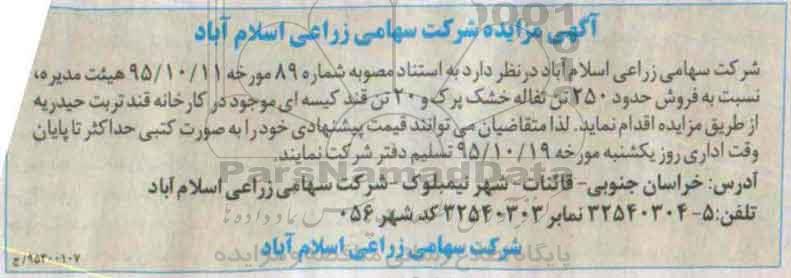 آگهی مزایده شرکت سهامی زراعی اسلام آباد
شرکت سهامی زراعی اسلام آباد درنظر دارد به استناد مصوبه شماره ۸۹ مورخه ۹۵/۱۰/۱۱ هیئت مدیره،
نسبت به فروش حدود ۲۵۰ تن تفاله خشک پرک و ۲۰ تن قند کیسه ای موجود در کارخانه قند تربت حیدریه
از طریق مزایده اقدام نماید. لذا متقاضیان می توانند قیمت پیشنهادی خود را به صورت کتبی حداکثر تا پایان
وقت اداری روز یکشنبه مورخه ۹۵/۱۰/۱۹ تسلیم دفتر شرکت نمایند.
ParsNamadData
آدرس: خراسان جنوبی- قائنات- شهر نیمبلوک - شرکت سهامی زراعی اسلام آباد
تلفن:۵- ۳۲۵۴۰۳۰۴ نمابر ۳۲۵۴۰۳۰۳ کد شهر ۰۵۶
شرکت سهامی زراعی اسلام آباد
۹۵۲۰۰۱۰۷/ع